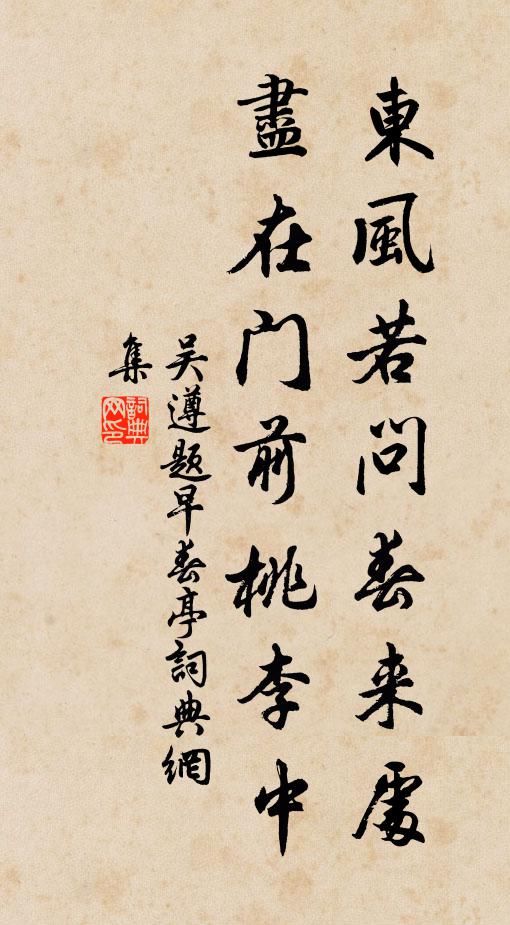 東風若問春来處
盡在门前桃李中
吴遵题早春亭詞典網
集
詞典
网印